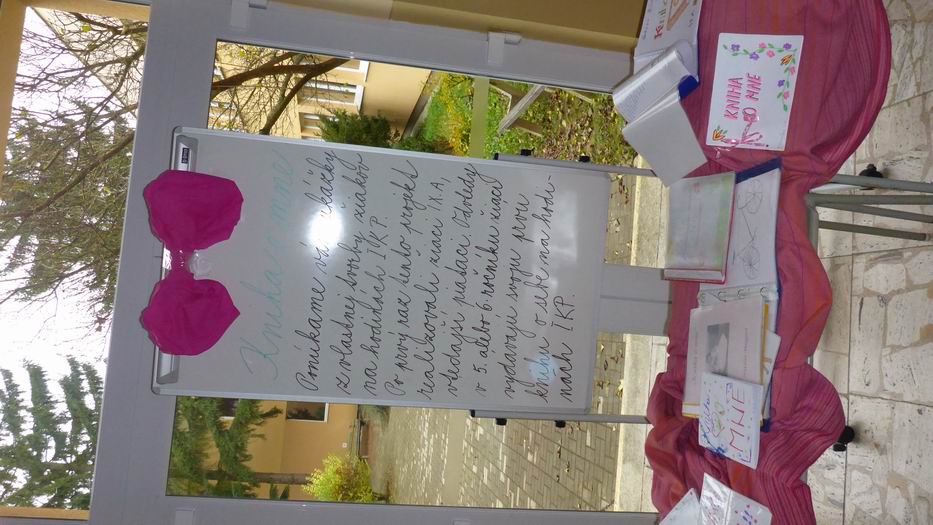 Kniha o mne
Ponúkame vá ukážky
z vlastnej tvorby žiakov
na hodinách IKP.
Po prvý raz tento projekt
realizovali žiaci IX.A,
vtedajší piataci. Odvtedy
v 5. alebo 6. ročníku žiaci
vydávajú svoju prvú
knihu o sebe na hodi-
nách IKP.
KNIHA
O MNE
MNE